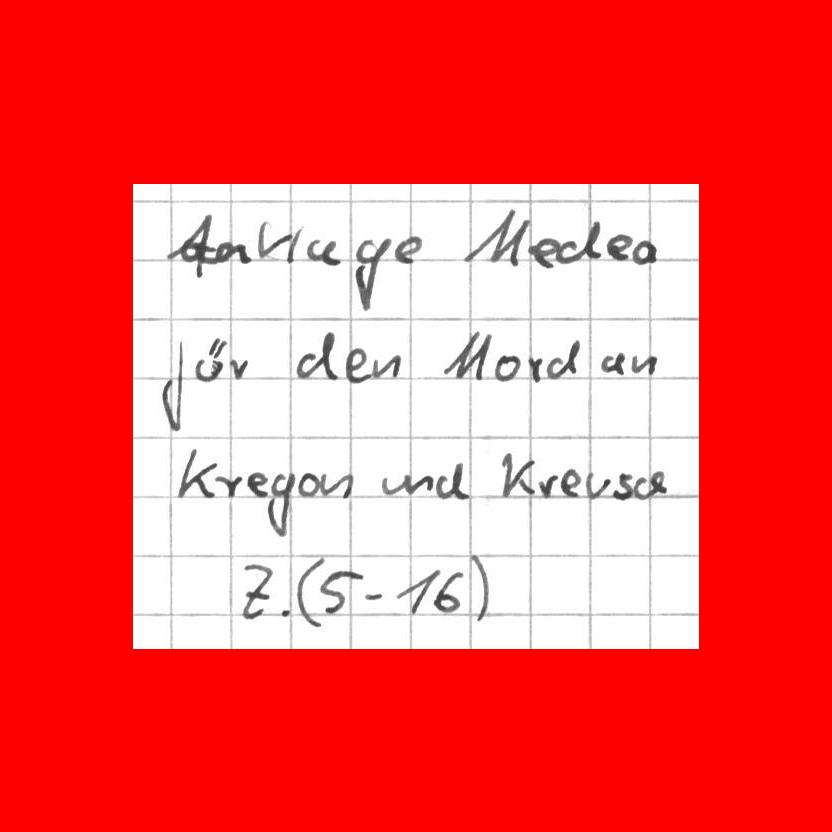 Anklage Medea
für den Mord an
Kregon und Kreusa
Z.(5-16)